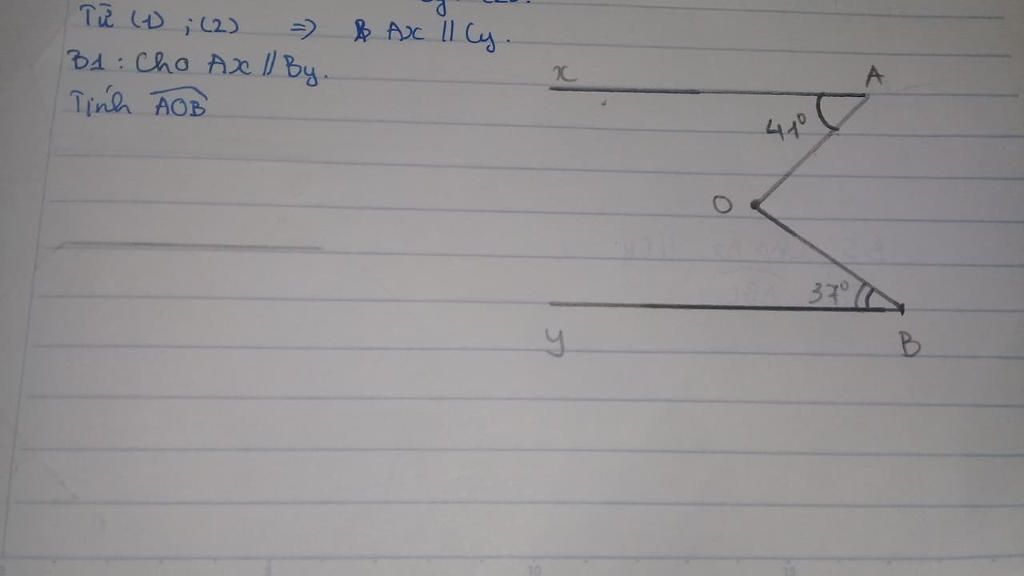 Từ (1) ; (2) => Ax // Cy.
B1 : Cho Ax // By.
Tính AOB
x
A
41°
O
37°
y
B